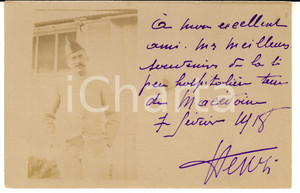 A mon excellent
ami. mes meilleurs
souvenirs de la si
peu hospitalière terre
de Macédoine
7 février 1918
Henri
iCharta